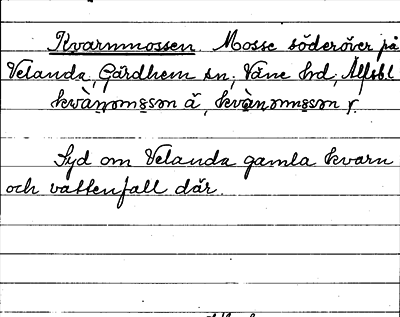 Kvarnmossen. Mosse söderöver på
Velanda, Gärdhem sn, Väne hd, Älfsbl
kvà̀ṇəmɔsən ä, kvàṇəmɔsən r.
Syd om Velanda gamla kvarn
och vattenfall där.